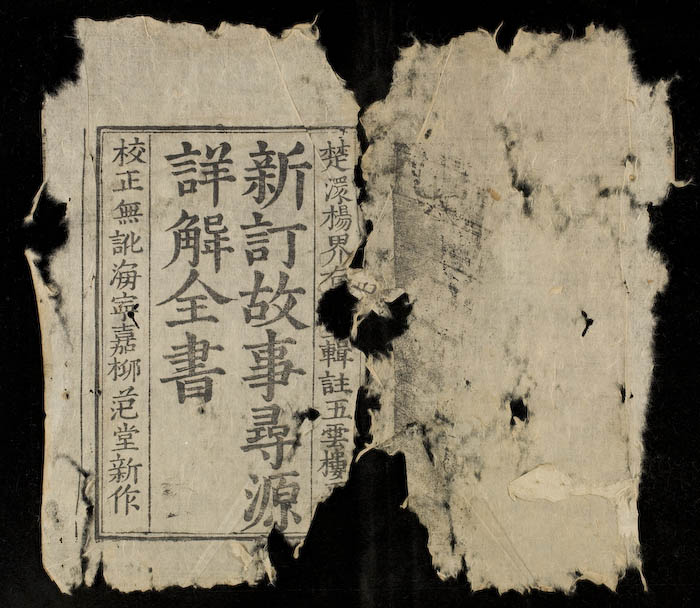 楚澴楊界輯註五雲樓
新訂故事尋源
詳解全書
校正無訛海寕嘉柳范堂新作